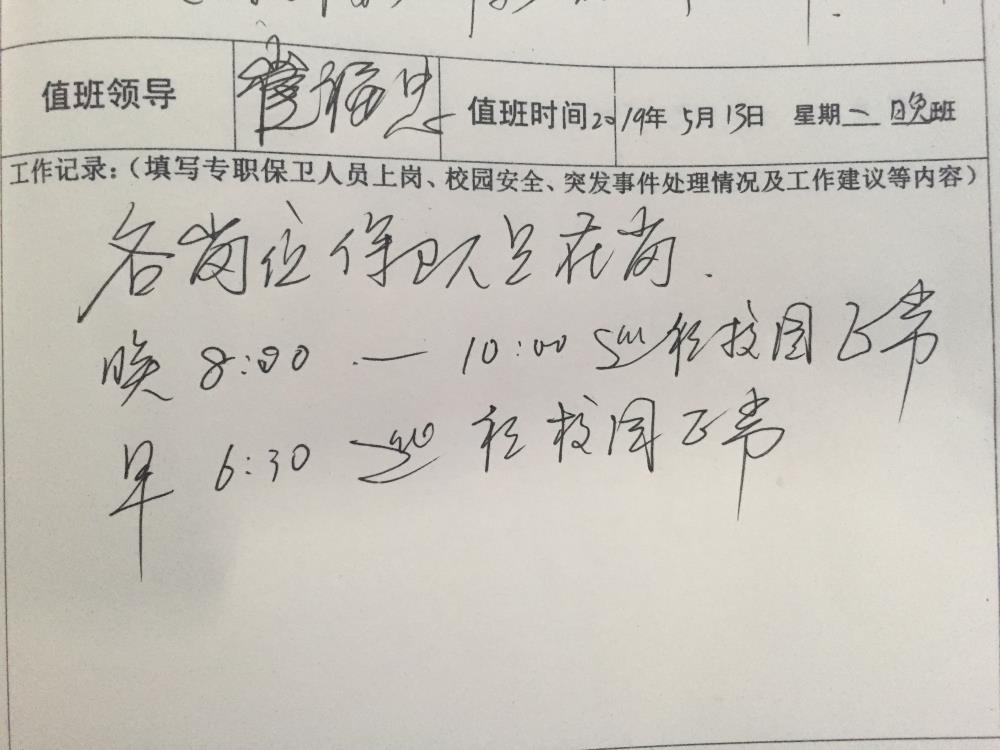 值班领导 值班时间2019年5月13日 星期一 晚班
工作记录：（填写专职保卫人员上岗、校园安全、突发事件处理情况及工作建议等内容）
各岗位保卫人员在岗.
晚 8:00 — 10:00 巡视校园正常
早 6:30 巡视校园正常